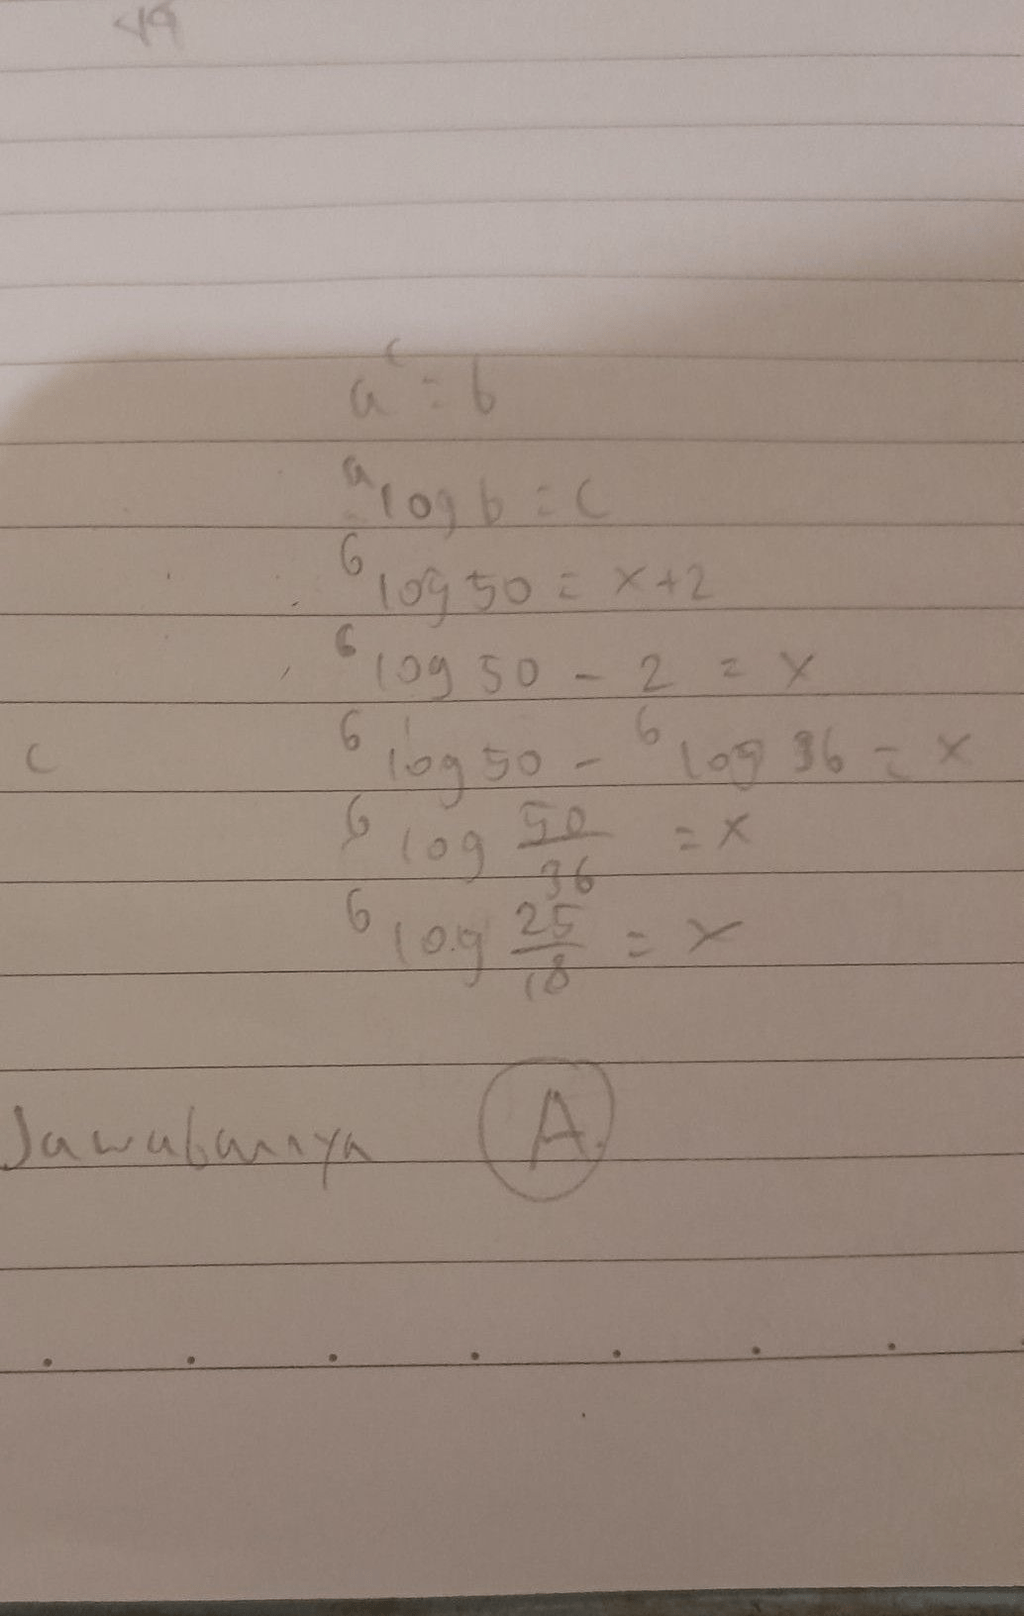 49
a^c = b
^a log b = c
^6 log 50 = x+2
^6 log 50 - 2 = x
c ^6 log 50 - ^6 log 36 = x
^6 log 50/36 = x
^6 log 25/18 = x
Jawabannya A.